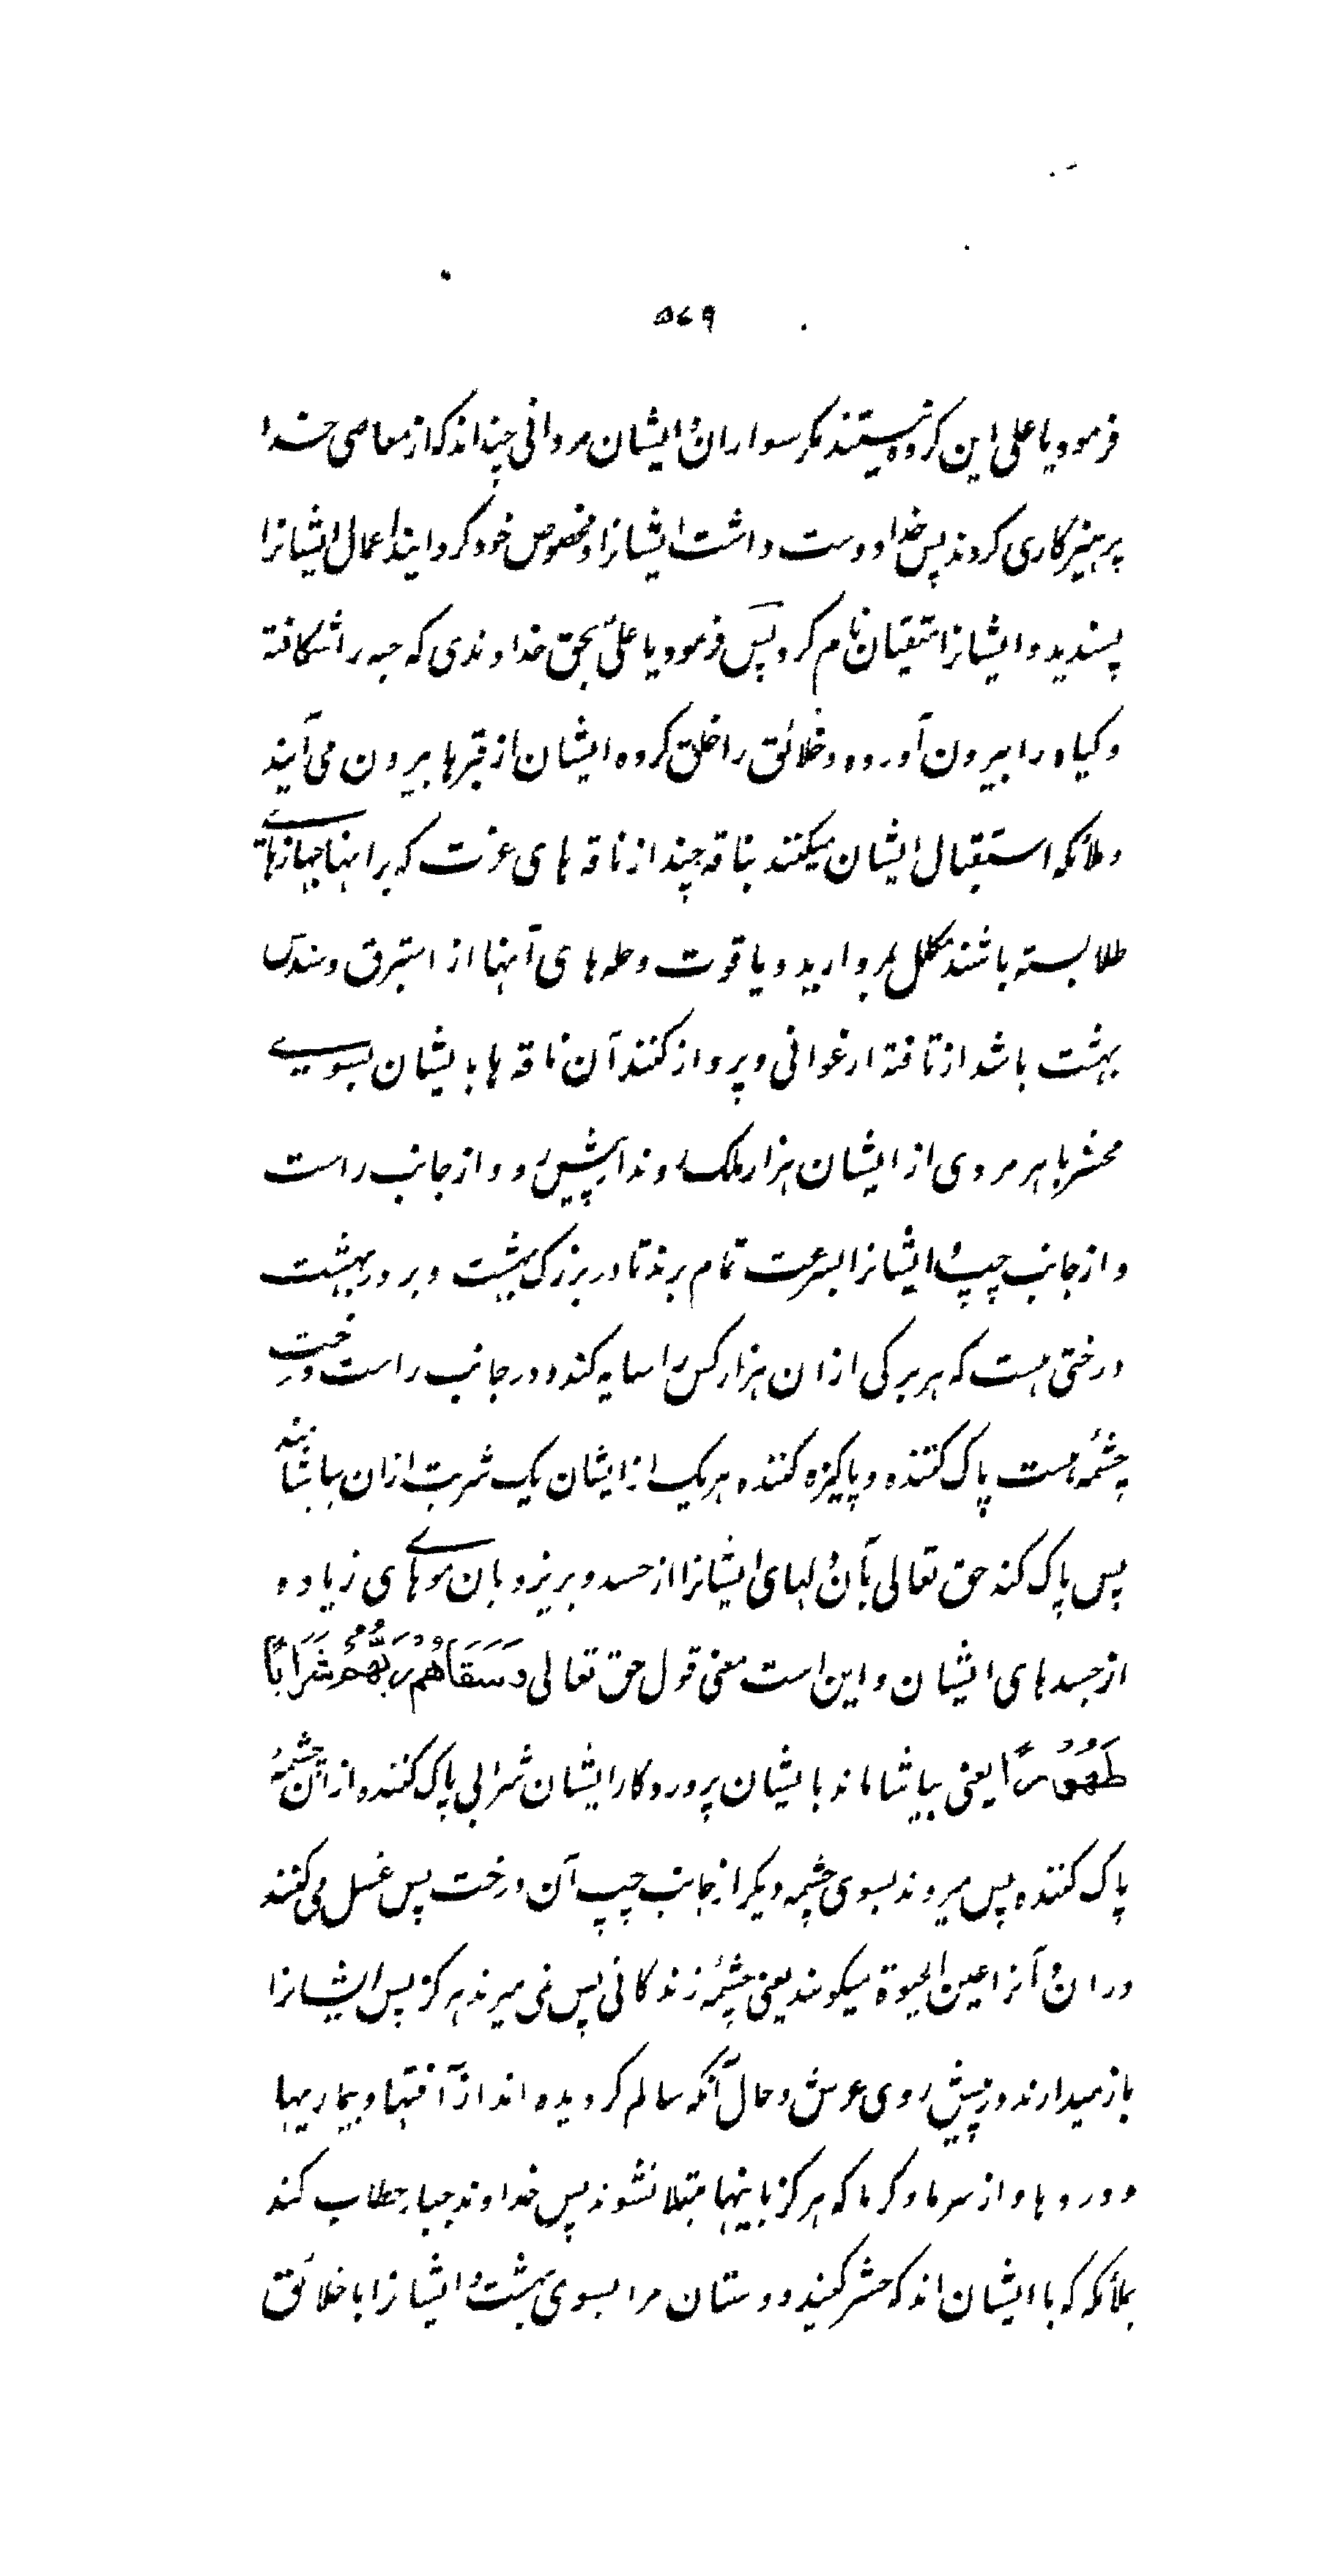 ۵۷۹
فرمود یا علی این کروه نیستند مکر سواران و ایشان مردانی چنداند که از معاصی خدا
پرهیزکاری کردند پس خدا دوست داشت ایشانرا و مخصوص خود کردانید اعمال ایشانرا
پسندید و ایشانرا متقیان نام کرد پس فرمود یا علی بحق خداوندی که حبه را شکافته
و کیاه را بیرون آورده و خلائق را خلق کرده ایشان از قبرها بیرون می آیند
و ملائکه استقبال ایشان میکنند بناقه چند از ناقه های عزت که بر انها جهازهای
طلا بسته باشند مکلل بمروارید و یاقوت و حله های آنها از استبرق و سندس
بهشت باشد از تافته ارغوانی و پرواز کنند آن ناقه ها بایشان بسوی
محشر با هر مردی از ایشان هزار ملک روند از پیش رو و از جانب راست
و از جانب چپ و ایشانرا بسرعت تمام برند تا در بزرک بهشت و بر در بهشت
درختی هست که هر برکی ازان هزار کس را سایه کند و در جانب راست درخت
چشمۀ هست پاک کننده و پاکیزه کننده هریک از ایشان یک شربت ازان بیاشامند
پس پاک کند حق تعالی بآن و لهای ایشانرا از حسد و بریزد بان موهای زیاده
از جسدهای ایشان و این است معنی قول حق تعالی وَسَقَاهُمْ رَبُّهُمْ شَرَابًا
طَهُوْرًا یعنی بیاشاماند بایشان پروردکار ایشان شرابی پاک کننده از آن چشمۀ
پاک کننده پس میروند بسوی چشمه دیکر از جانب چپ آن درخت پس غسل می کنند
دران و آنرا عین الحیوة میکویند یعنی چشمۀ زندکانی پس نمی میرند هرکز پس ایشانرا
باز میدارند در پیش روی عرش و حال آنکه سالم کردیده اند از آفتها و بیماریها
و دردها و از سرما و کرما که هرکز باینها مبتلا نشوند پس خداوند جبار خطاب کند
بملائکه که با ایشان اند که حشر کنید دوستان مرا بسوی بهشت و ایشانرا با خلائق